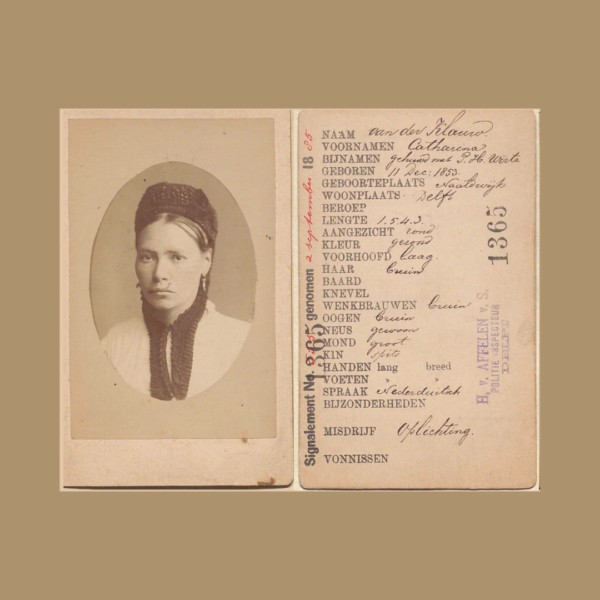 NAAM van der Klauw.
VOORNAMEN Catharina,
BIJNAMEN gehuwd met P. H. Weste
GEBOREN 11 Dec: 1853.
GEBOORTEPLAATS Naaldwijk
WOONPLAATS Delft
BEROEP
LENGTE 1.5.4.3.
AANGEZICHT rond
KLEUR gezond
VOORHOOFD laag.
HAAR bruin
BAARD
KNEVEL
WENKBRAUWEN bruin
OOGEN bruin
NEUS gewoon
MOND groot
KIN spits
HANDEN lang breed
VOETEN " "
SPRAAK Nederduitsch
BIJZONDERHEDEN
MISDRIJF Oplichting.
VONNISSEN
Signalement No. 1365 genomen 2 september 1885
1365
H. v. AFFELEN v. S.
POLITIE INSPECTEUR
DELFT